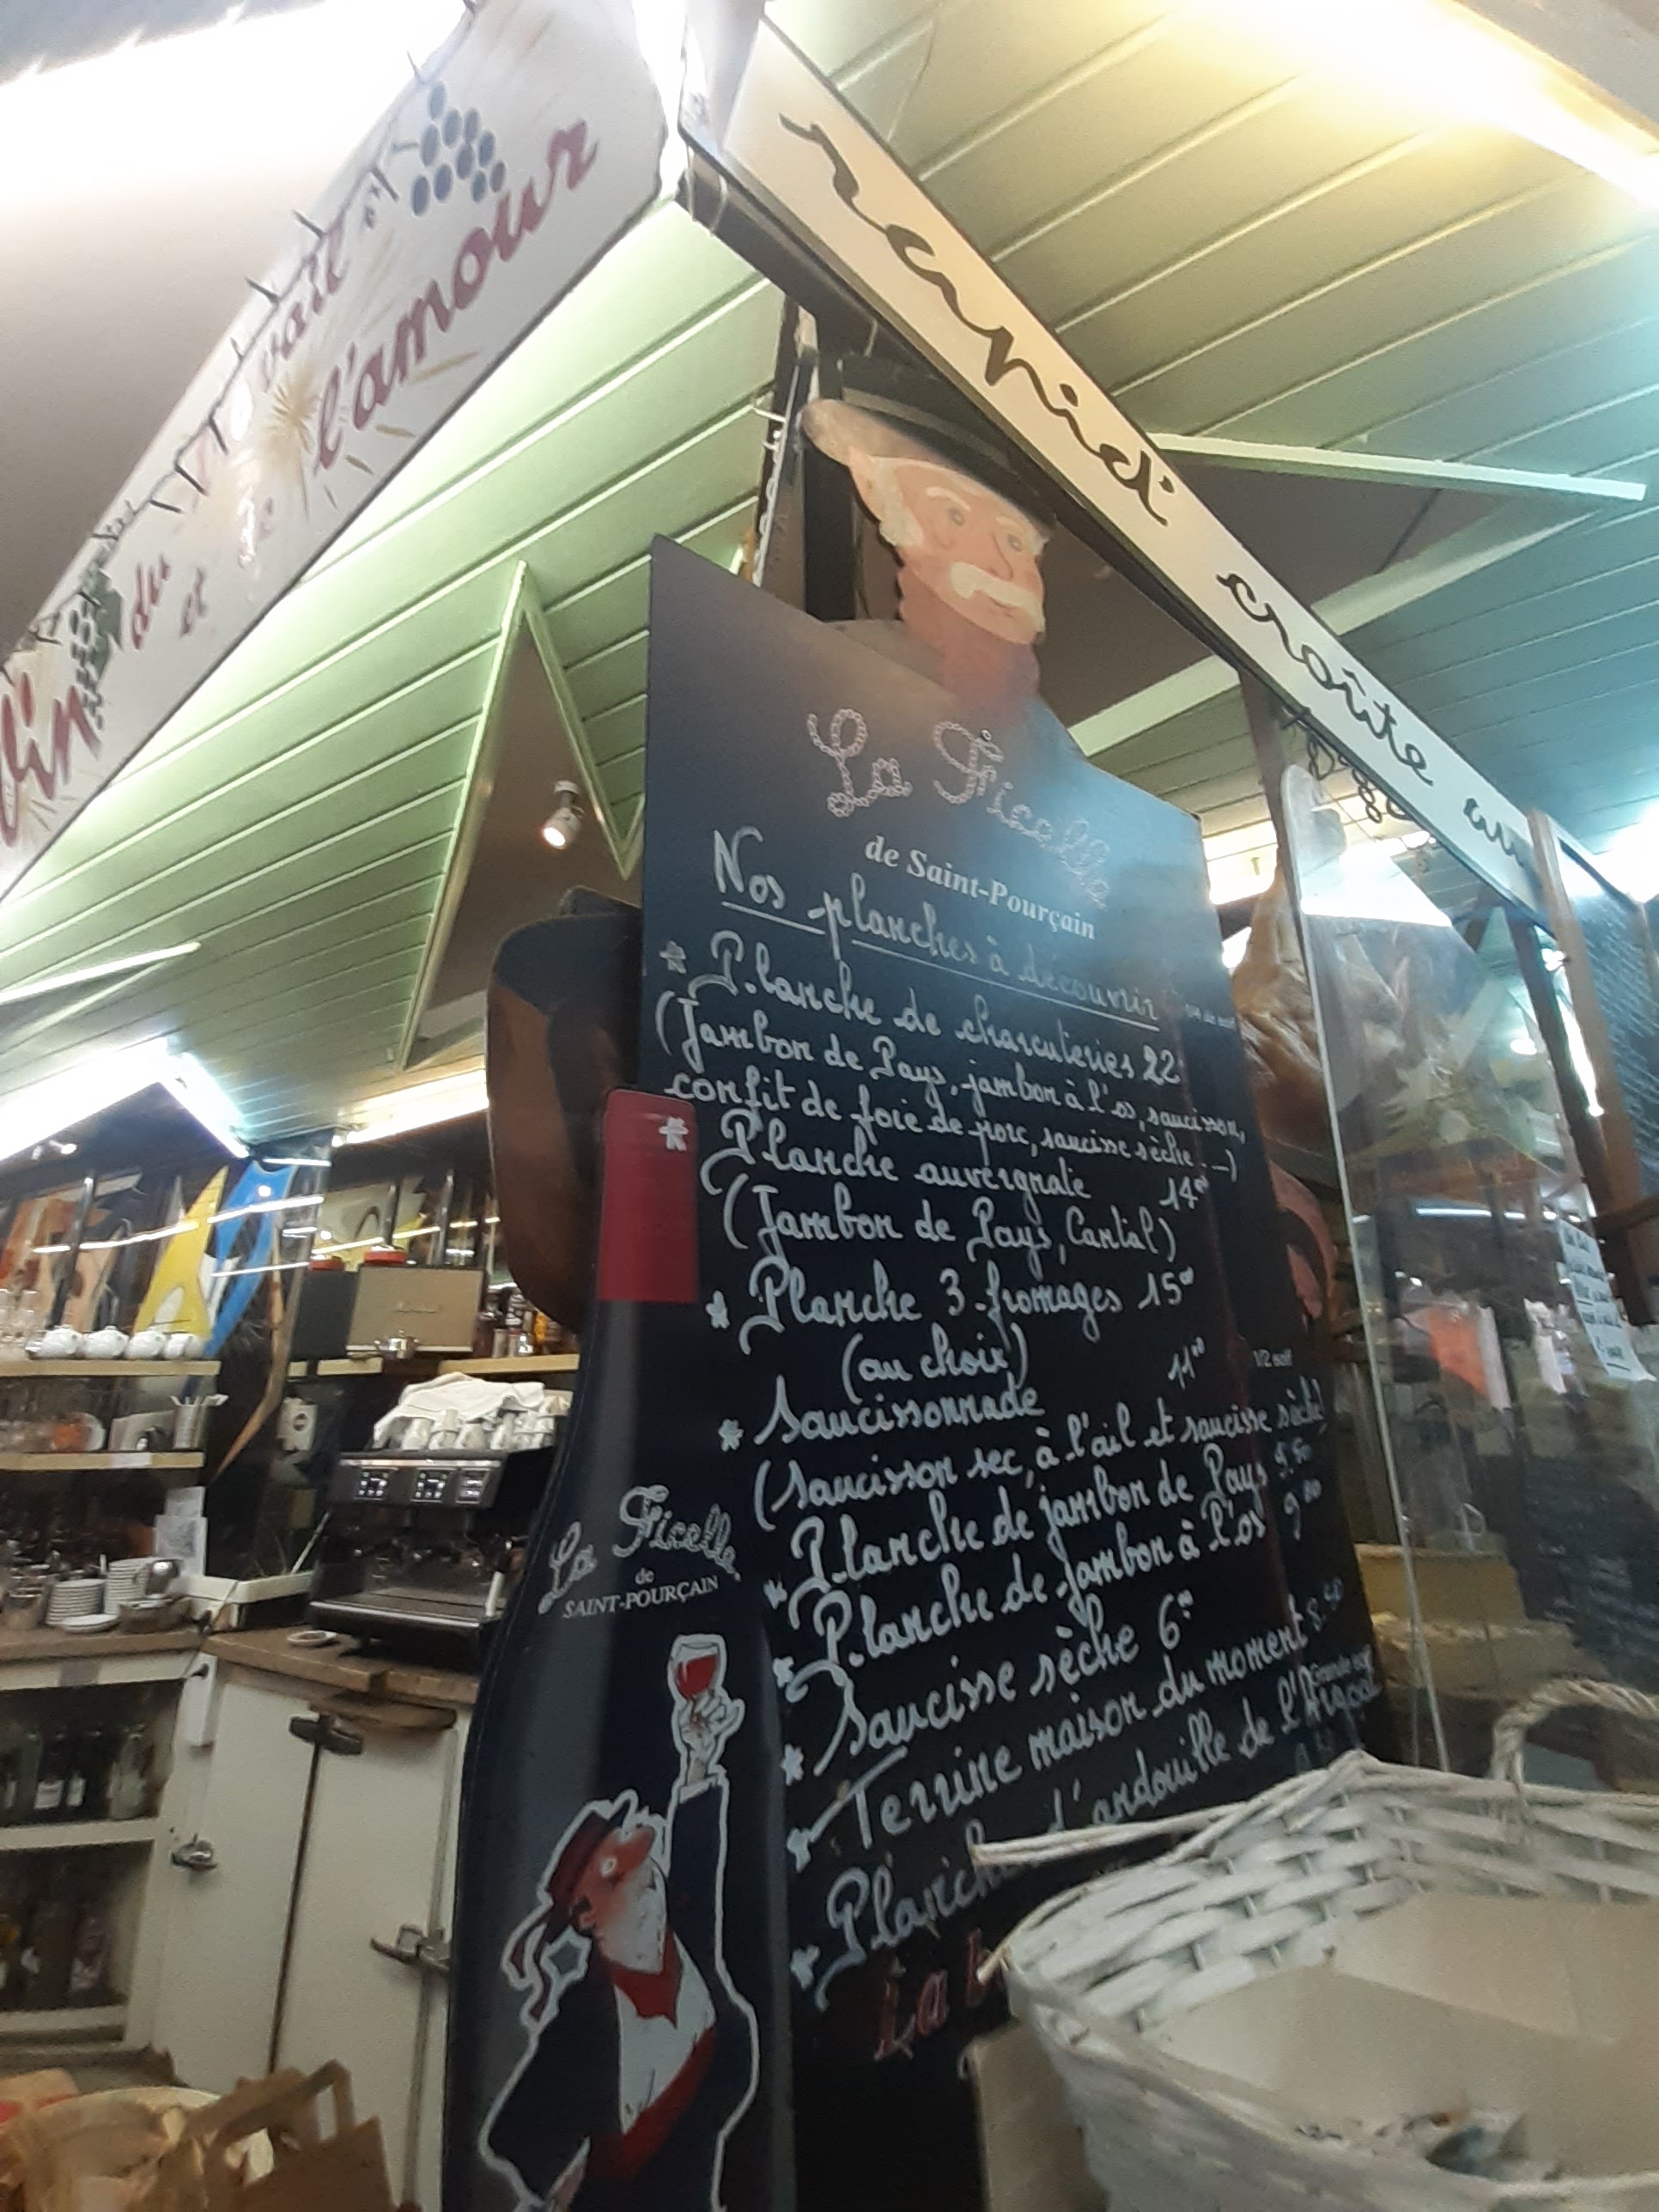 vin
du travail
et de l'amour
rapid' croûte au
La Ficelle
de Saint-Pourçain
Nos planches à découvrir
* Planche de charcuteries 22
(Jambon de Pays, jambon à l'os, saucisson,
confit de foie de porc, saucisse sèche...)
* Planche auvergnate 14°°
(Jambon de Pays, Cantal)
* Planche 3 fromages 15°°
(au choix)
1/2 soif
* Saucissonnade 11°°
(saucisson sec, à l'ail et saucisse sèche)
* Planche de jambon de Pays 9.50
* Planche de jambon à l'os 9°°
* Saucisse sèche 6°°
* Terrine maison du moment 8.50
* Planche d'andouille de l'
La
La Ficelle
de
SAINT-POURÇAIN